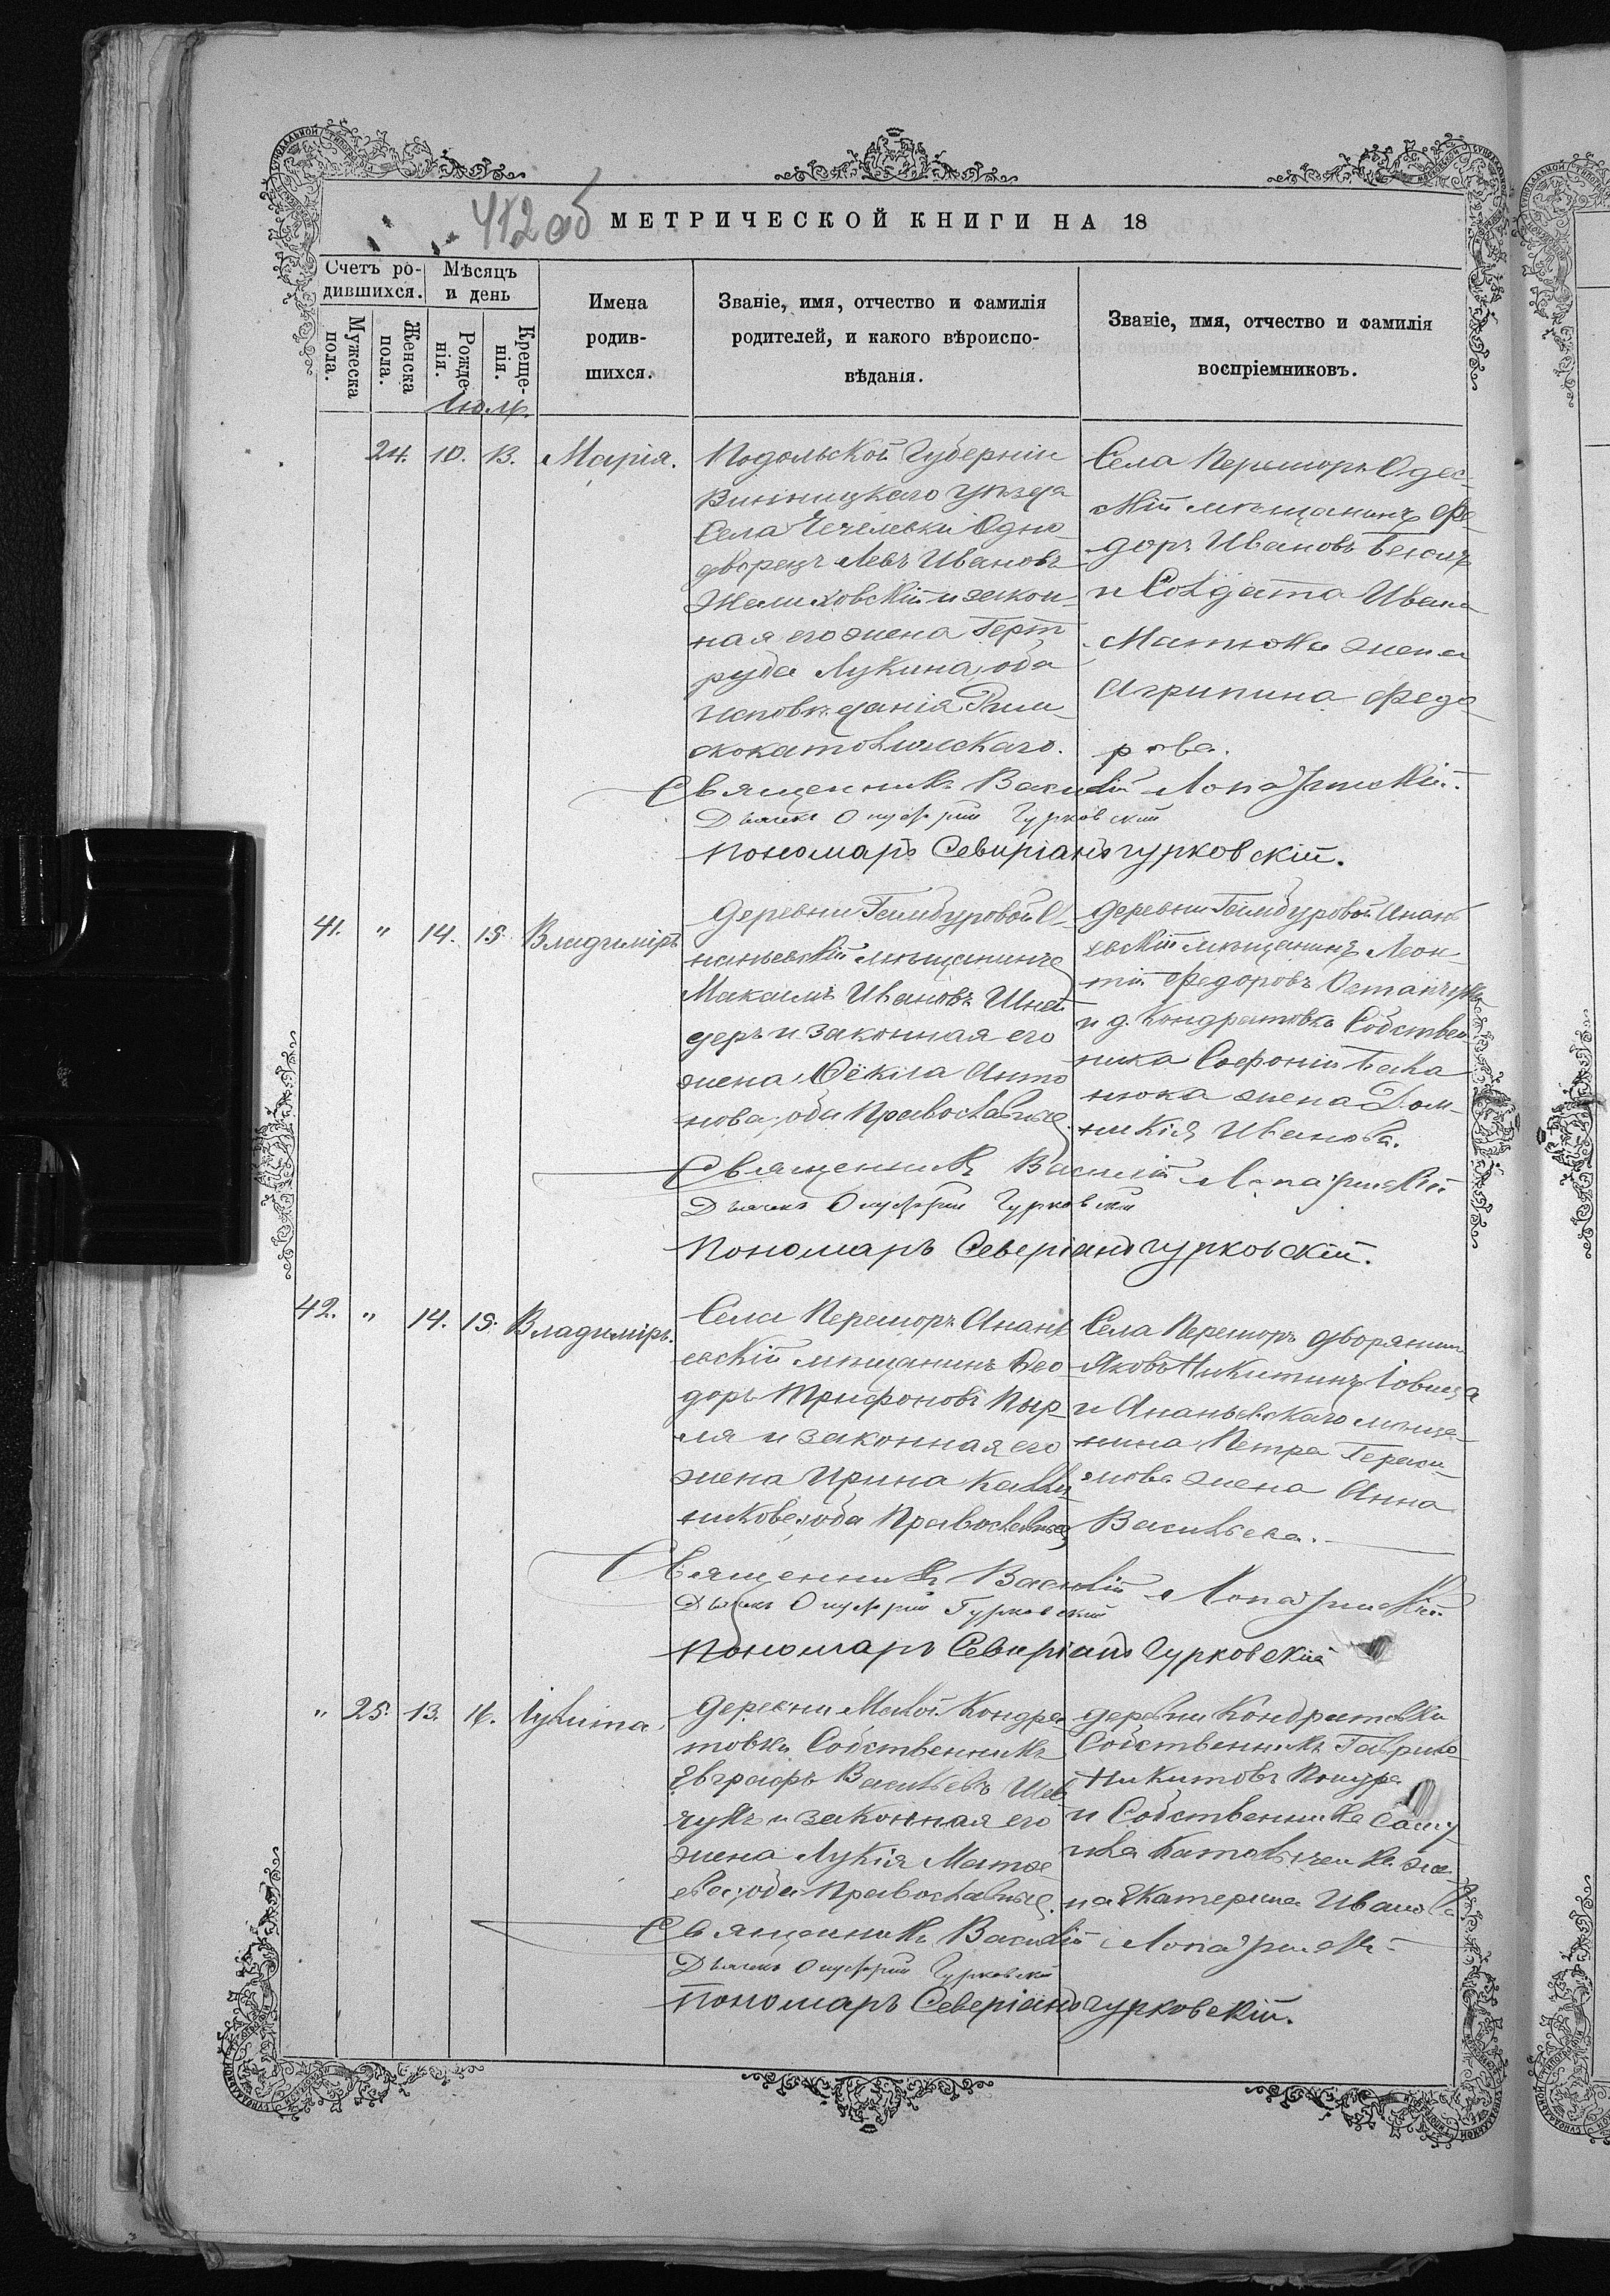 412 об
МЕТРИЧЕСКОЙ КНИГИ НА 18
Счетъ ро-
дившихся.
Мѣсяцъ
и день
Мужеска
пола.
Женска
пола.
Рожде-
нія.
Креще-
нія.
Имена
родив-
шихся.
Званіе, имя, отчество и фамилія
родителей, и какого вѣроиспо-
вѣданія.
Званіе, имя, отчество и фамилія
воспріемниковъ.
Іюль.
24. 10. 13. Марія.
Подольской Губерніи
Винницкаго уѣзда
Села Одно-
дворецъ Левъ Ивановъ
и закон-
ная его жена Герт
руда Лукина, оба
исповѣданія Рим-
скокатолическаго.
Села Перешоръ Одес-
скій мѣщанинъ Фе-
доръ Ивановъ
и Солдата Ивана
жена
Агрипина Федо-
рова.
Священникъ Василій
Дьячекъ Онуфрій Гурковскій
Пономарь Севиріанъ Гурковскій.
41. " 14. 15. Владиміръ
Деревни Гамбуровой А-
наньевскій мѣщанинъ
Максимъ Ивановъ Шней
деръ и законная его
жена Ѳекла Анто
нова, оба Православные.
Деревни Гамбуровой Анань
евскій мѣщанинъ Леон-
тій Федоровъ
и д. Кондратовка Собствен
ника Софронія
нюка жена Дом-
никія Иванова.
Священникъ Василій
Дьячекъ Онуфрій Гурковскій
Пономарь Северіанъ Гурковскій.
42. " 14. 15. Владиміръ.
Села Перешоръ Анань
евскій мѣщанинъ Ѳео
доръ Трифоновъ Пыр-
ля и законная его
жена Ирина Калли
никова, оба Православные
Села Перешоръ дворянин
Яковъ Никитинъ Іовица
и Ананьевскаго мѣща-
нина Петра Гераси-
мова жена Анна
Васильева.
Священникъ Василій
Дьячекъ Онуфрій Гурковскій
Пономарь Севиріанъ Гурковскій
" 25. 13. 16. Іулита.
Деревни Малой Кондра
товки Собственникъ
Евграфъ Васильевъ Шев
чукъ и законная его
жена Лукія Матѳе
ева, оба Православные.
Деревни Кондратовки
Собственникъ Гаврило
Никитовъ
и Собственника Саму
ила же
на Екатерина Иванова
Священникъ Василій
Дьячекъ Онуфрій Гурковскій
Пономарь Северіанъ Гурковскій.